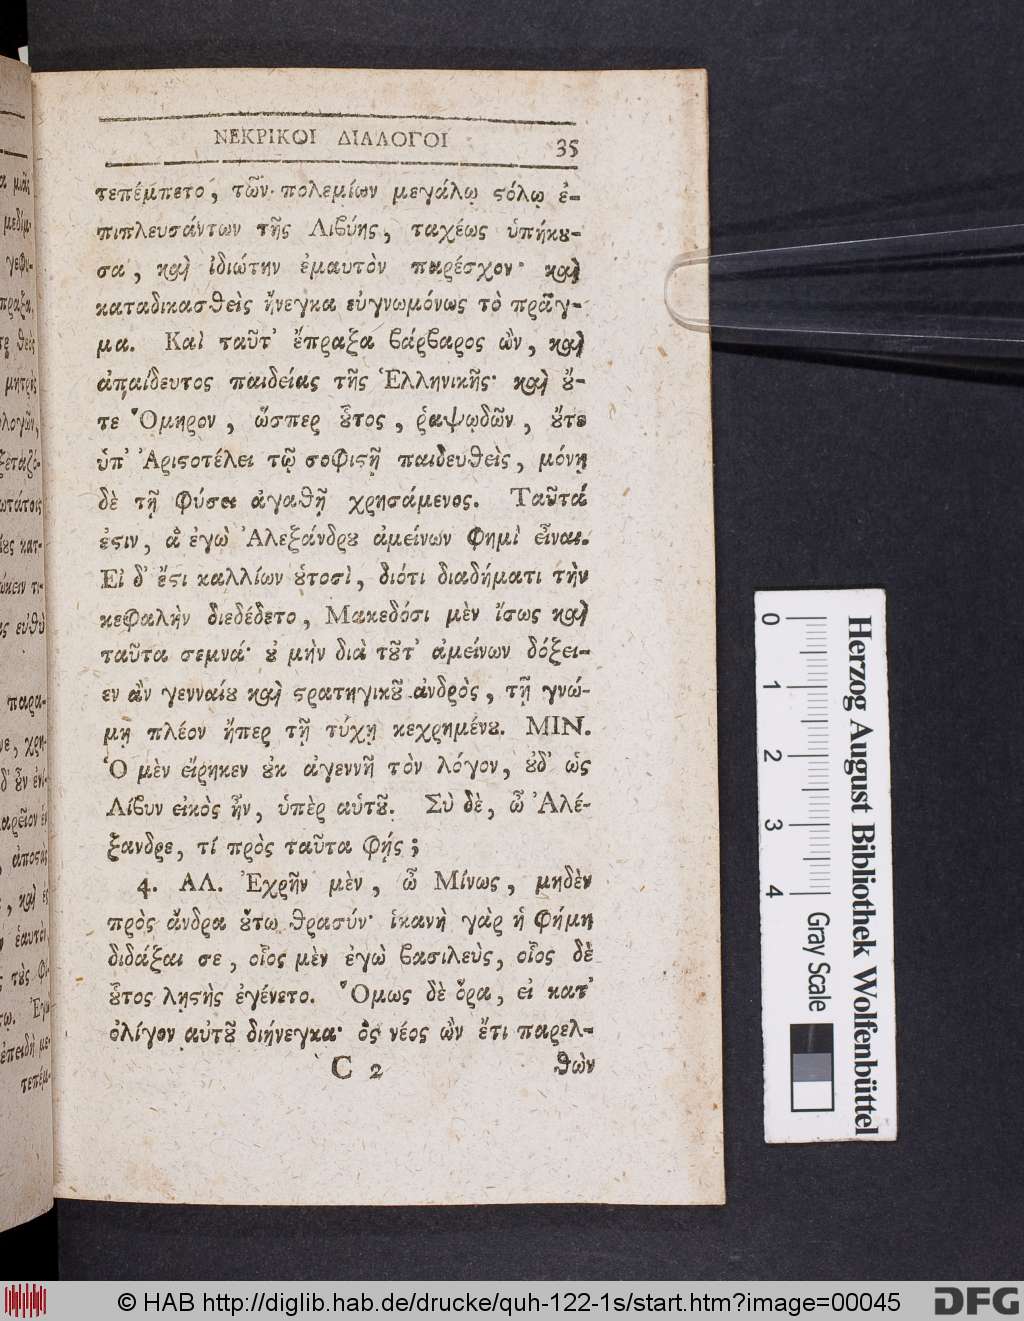 ΝΕΚΡΙΚΟΙ ΔΙΑΛΟΓΟΙ 35
τεπέμπετο, τῶν πολεμίων μεγάλῳ ϛόλῳ ἐ-
πιπλευσάντων τῆς Λιϐύης, ταχέως ὑπήκȣ-
σα, καὶ ἰδιώτην ἐμαυτὸν παρέσχον· καὶ
καταδικασθεὶς ἤνεγκα εὐγνωμόνως τὸ πρᾶγ-
μα. Καὶ ταῦτ' ἔπραξα ϐάρϐαρος ὢν, καὶ
ἀπαίδευτος παιδείας τῆς Ἑλληνικῆς· καὶ ȣ̓́-
τε Ὅμηρον, ὥσπερ ȣ̔͂τος, ῥαψῳδῶν, ȣ̓́τε
ὑπ' Ἀριϛοτέλει τῷ σοφιϛῇ παιδευθεὶς, μόνῃ
δὲ τῇ φύσει ἀγαθῇ χρησάμενος. Ταῦτά
ἐϛιν, ἃ ἐγὼ Ἀλεξάνδρȣ ἀμείνων φημὶ εἶναι.
Εἰ δ' ἔϛι καλλίων ȣ̔τοσὶ, διότι διαδήματι τὴν
κεφαλὴν διεδέδετο, Μακεδόσι μὲν ἴσως καὶ
ταῦτα σεμνά· ȣ̓ μὴν διὰ τȣ͂τ' ἀμείνων δόξει-
εν ἂν γενναίȣ καὶ ϛρατηγικȣ͂ ἀνδρὸς, τῇ γνώ-
μῃ πλέον ἤπερ τῇ τύχῃ κεχρημένȣ. ΜΙΝ.
Ὁ μὲν εἴρηκεν ȣ̓κ ἀγεννῆ τὸν λόγον, ȣ̓δ' ὡς
Λίϐυν εἰκὸς ἦν, ὑπὲρ αὑτȣ͂. Σὺ δὲ, ὦ Ἀλέ-
ξανδρε, τί πρὸς ταῦτα φῄς;
4. ΑΛ. Ἐχρῆν μὲν, ὦ Μίνως, μηδὲν
πρὸς ἄνδρα ȣ̔́τω θρασύν· ἱκανὴ γὰρ ἡ φήμη
διδάξαι σε, οἷος μὲν ἐγὼ ϐασιλεὺς, οἷος δὲ
ȣ̔͂τος λῃϛὴς ἐγένετο. Ὅμως δὲ ὅρα, εἰ κατ'
ὀλίγον αὐτȣ͂ διήνεγκα· ὃς νέος ὢν ἔτι παρελ-
C 2 θὼν
Herzog August Bibliothek Wolfenbüttel
0 1 2 3 4 Gray Scale
© HAB http://diglib.hab.de/drucke/quh-122-1s/start.htm?image=00045
DFG